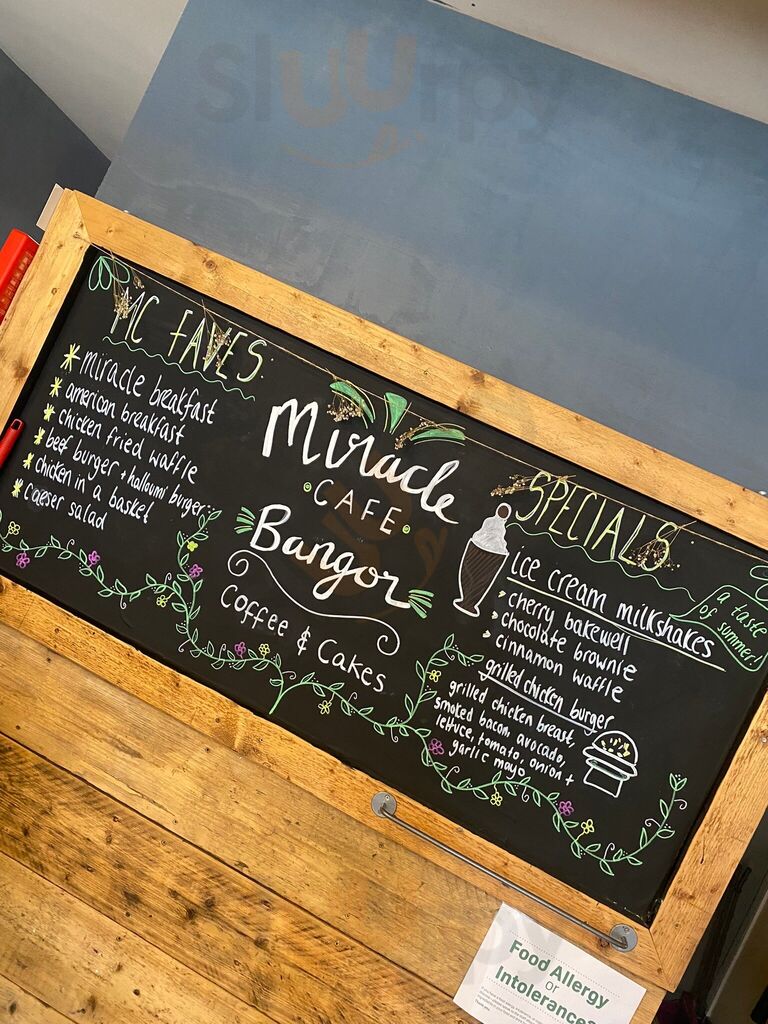 sluurpy
MC FAVES
miracle breakfast
american breakfast
chicken fried waffle
beef burger + halloumi burger
chicken in a basket
caeser salad
Miracle
CAFE
Bangor
Coffee & Cakes
SPECIALS
ice cream milkshakes
cherry bakewell
chocolate brownie
cinnamon waffle
a taste
of summer!
grilled chicken burger
grilled chicken breast,
smoked bacon, avocado,
lettuce, tomato, onion +
garlic mayo
Food Allergy
or
Intolerances